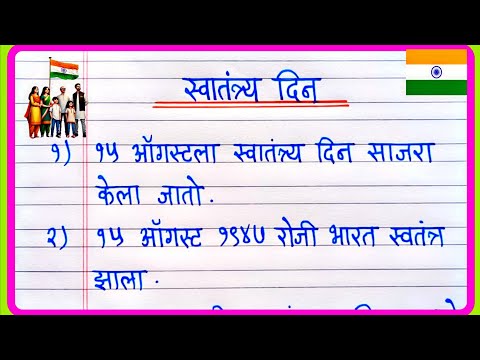 स्वातंत्र्य दिन
१) १५ ऑगस्टला स्वातंत्र्य दिन साजरा
केला जातो.
२) १५ ऑगस्ट १९४७ रोजी भारत स्वतंत्र
झाला.